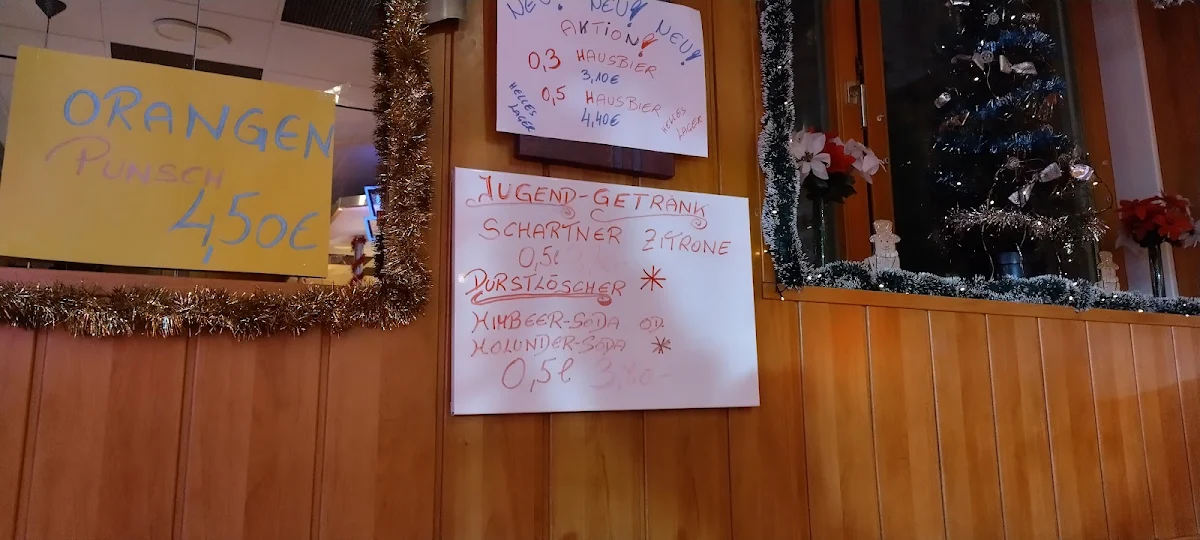 ORANGEN
PUNSCH
4,50€
NEU! NEU! NEU!
AKTION!
0,3 HAUSBIER
3,10€
0,5 HAUSBIER
4,40€
HELLES
LAGER
HELLES
LAGER
JUGEND-GETRANK
SCHARTNER ZITRONE
0,5l
DURSTLÖSCHER *
HIMBEER-SODA OD.
HOLUNDER-SODA *
0,5l